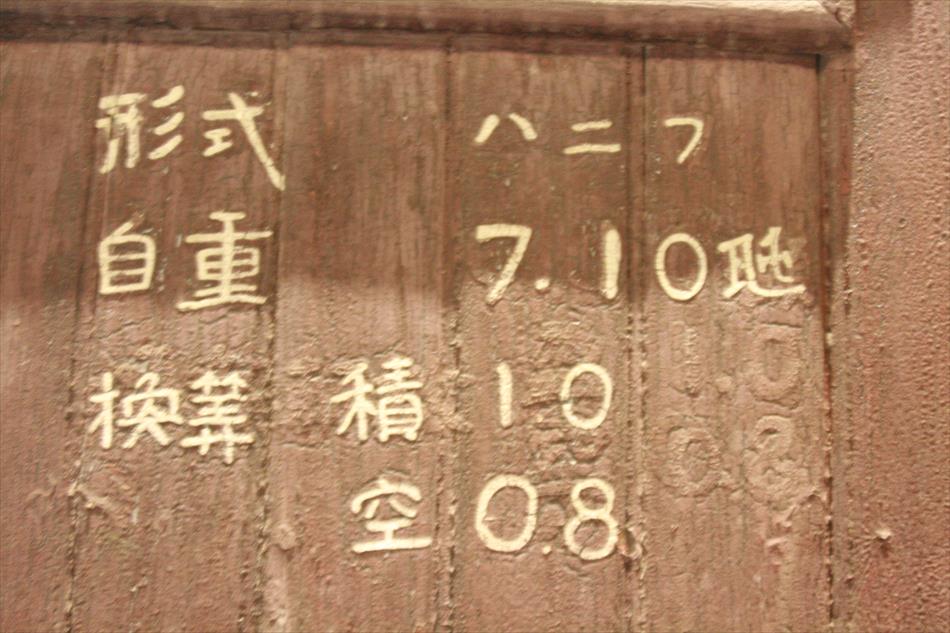 形式 ハニフ
自重 7.10瓲
換算 積 10
空 0.8